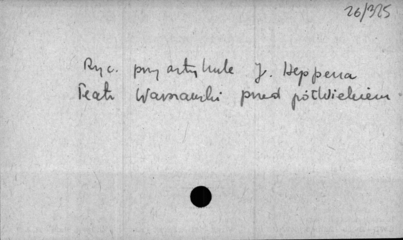 26/325
Ryc. przy artykule J. Heppena
Teatr Warszawski przed półwiekiem.